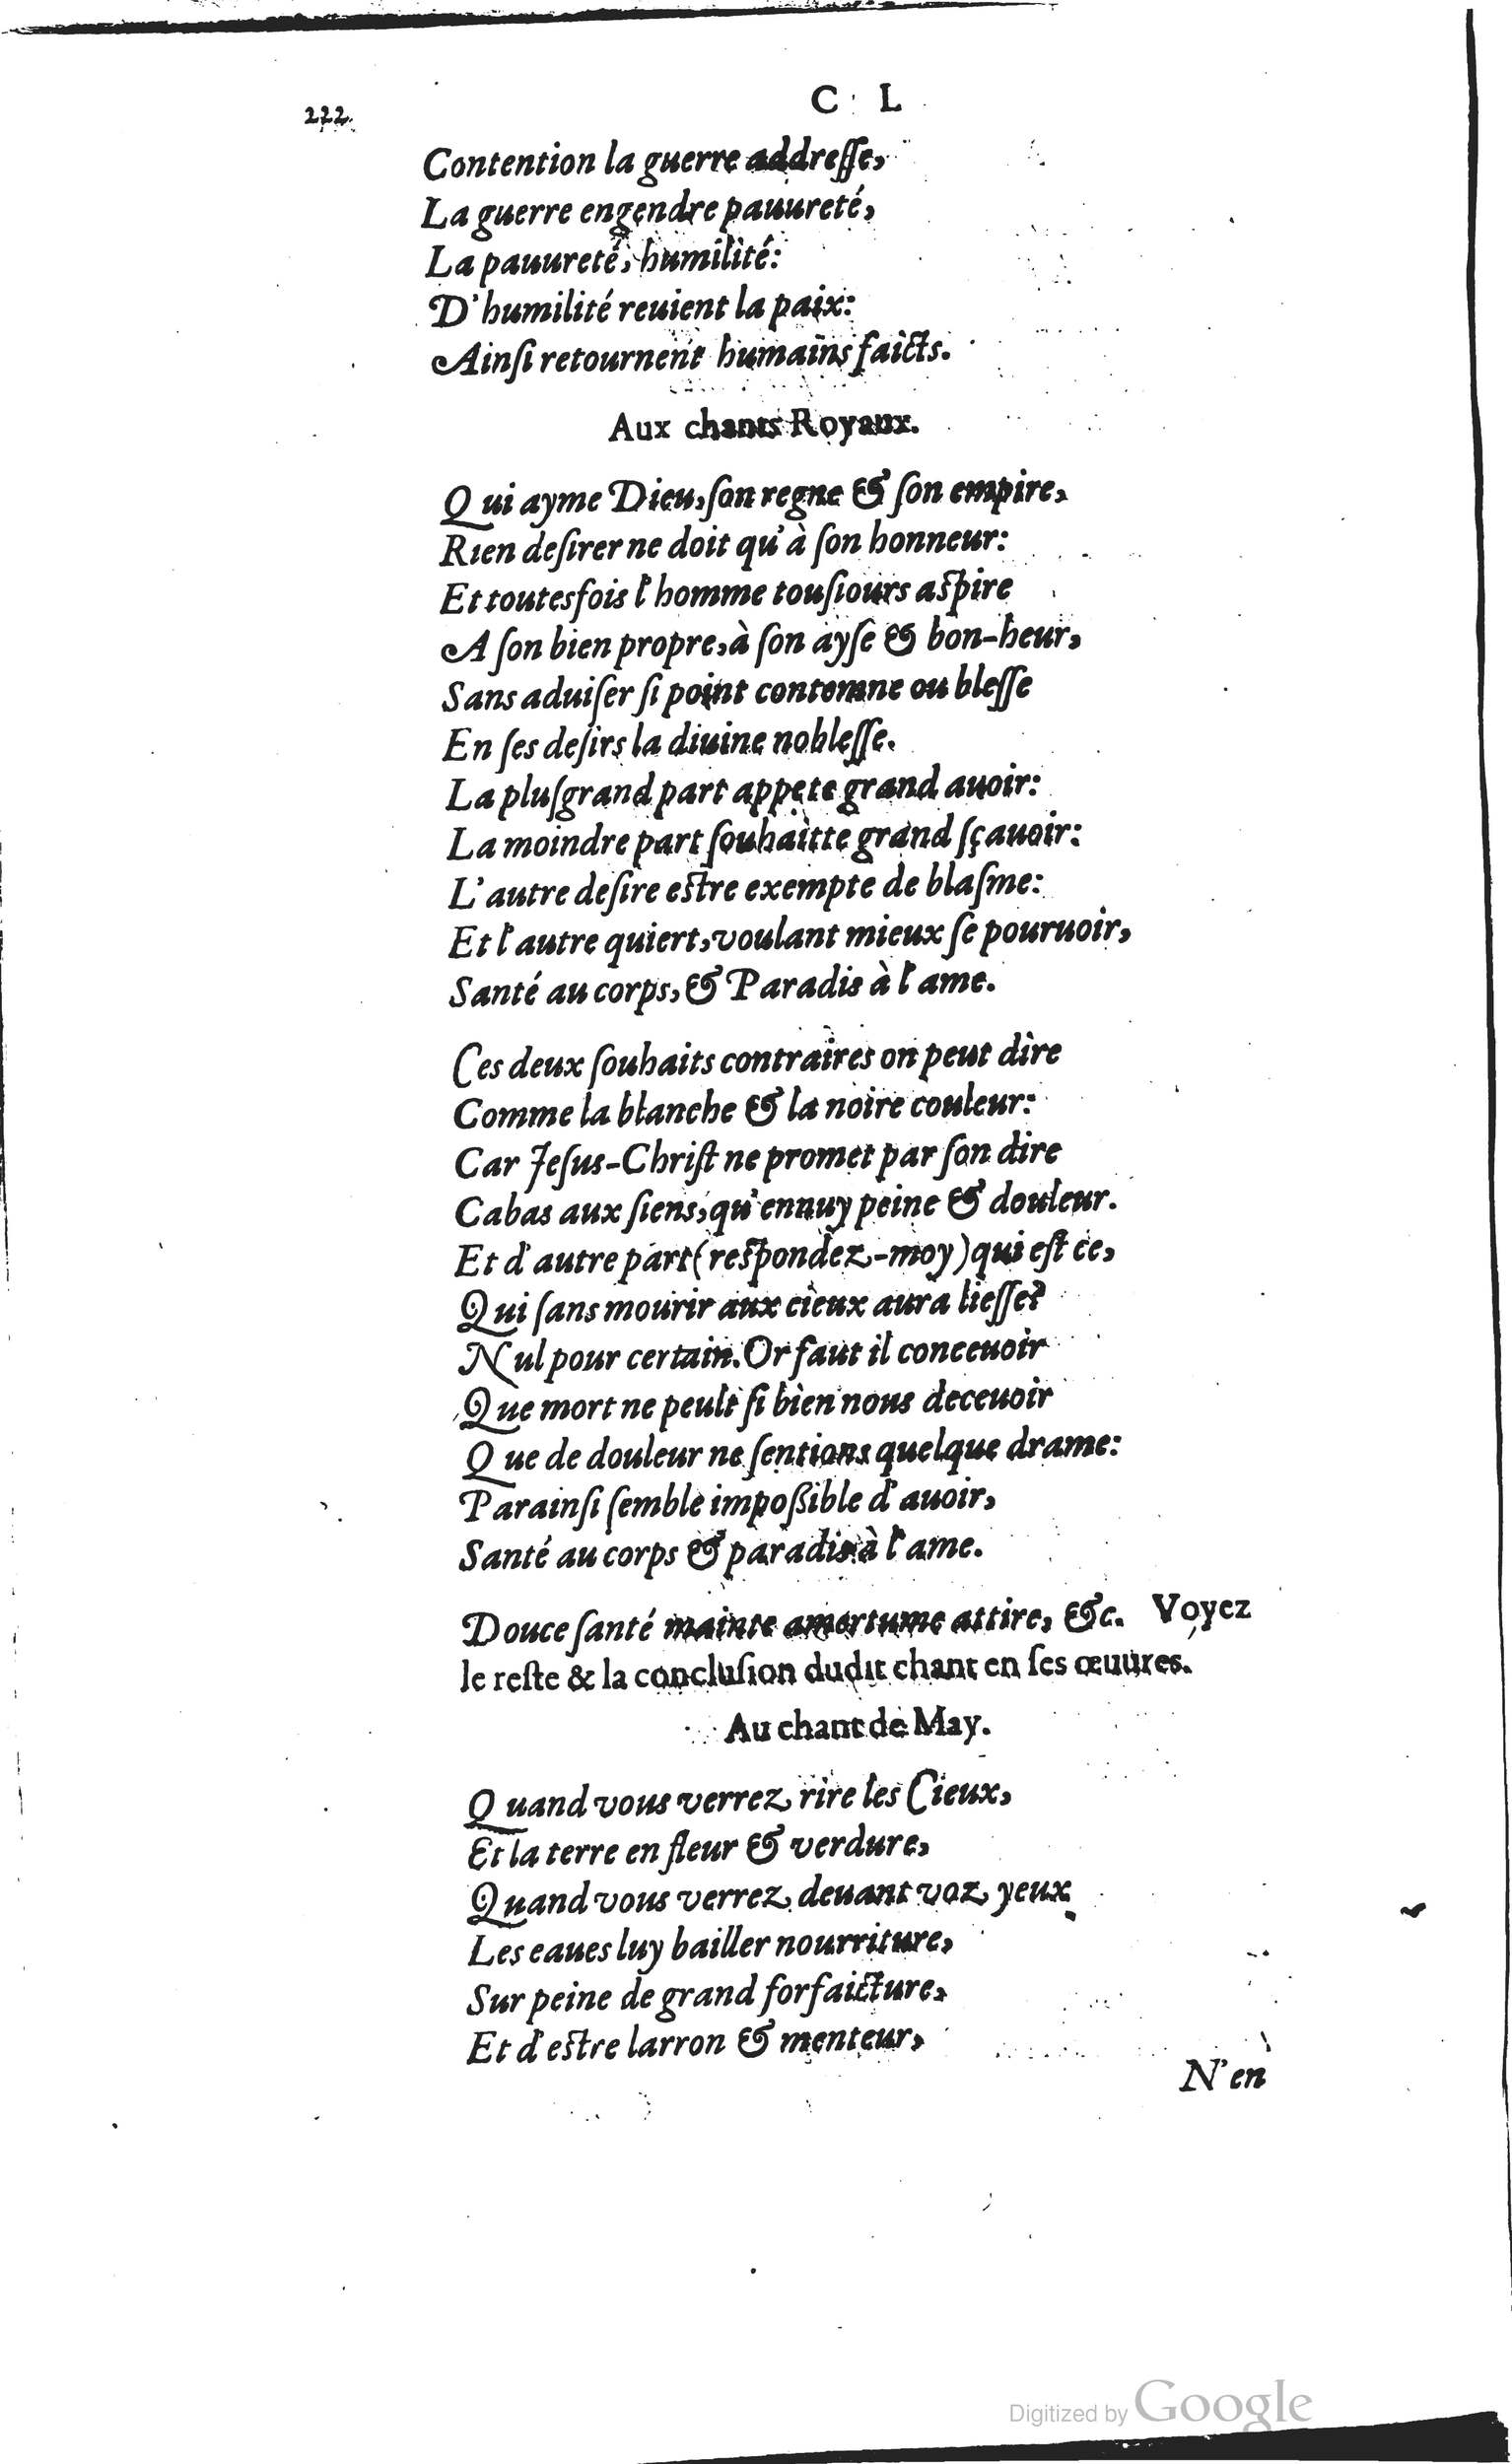 222
C L
Contention la guerre addreſſe,
La guerre engendre pauureté,
La pauureté, humilité:
D'humilité reuient la paix:
Ainſi retournent humains faicts.
Aux chants Royaux.
Qui ayme Dieu, ſon regne & ſon empire,
Rien deſirer ne doit qu'à ſon honneur:
Et toutesfois l'homme touſiours aſpire
A ſon bien propre, à ſon ayſe & bon-heur,
Sans aduiſer ſi point contemne ou bleſſe
En ſes deſirs la diuine nobleſſe.
La pluſgrand part appete grand auoir:
La moindre part ſouhaitte grand ſçauoir:
L'autre deſire eſtre exempte de blaſme:
Et l'autre quiert, voulant mieux ſe pouruoir,
Santé au corps, & Paradis à l'ame.
Ces deux ſouhaits contraires on peut dire
Comme la blanche & la noire couleur:
Car Jeſus-Chriſt ne promet par ſon dire
Cabas aux ſiens, qu'ennuy peine & douleur.
Et d'autre part (reſpondez-moy) qui eſt ce,
Qui ſans mourir aux cieux aura lieſſe?
Nul pour certain. Or faut il conceuoir
Que mort ne peult ſi bien nous deceuoir
Que de douleur ne ſentions quelque drame:
Parainſi ſemble impoßible d'auoir,
Santé au corps & paradis à l'ame.
Douce ſanté mainte amertume attire, &c. Voyez
le reſte & la concluſion dudit chant en ſes œuures.
Au chant de May.
Quand vous verrez rire les Cieux,
Et la terre en fleur & verdure,
Quand vous verrez deuant voz yeux
Les eaues luy bailler nourriture,
Sur peine de grand forfaicture,
Et d'eſtre larron & menteur,
N'en
Digitized by Google